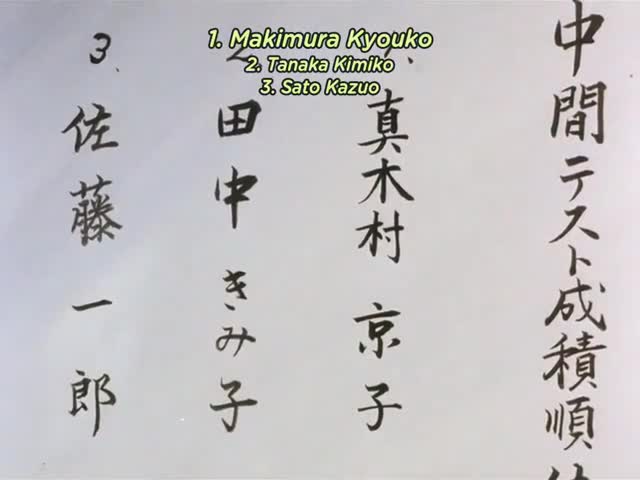 1. Makimura Kyouko
2. Tanaka Kimiko
3. Sato Kazuo
中間テスト成積順
真木村 京子
田中きみ子
3. 佐藤一郎